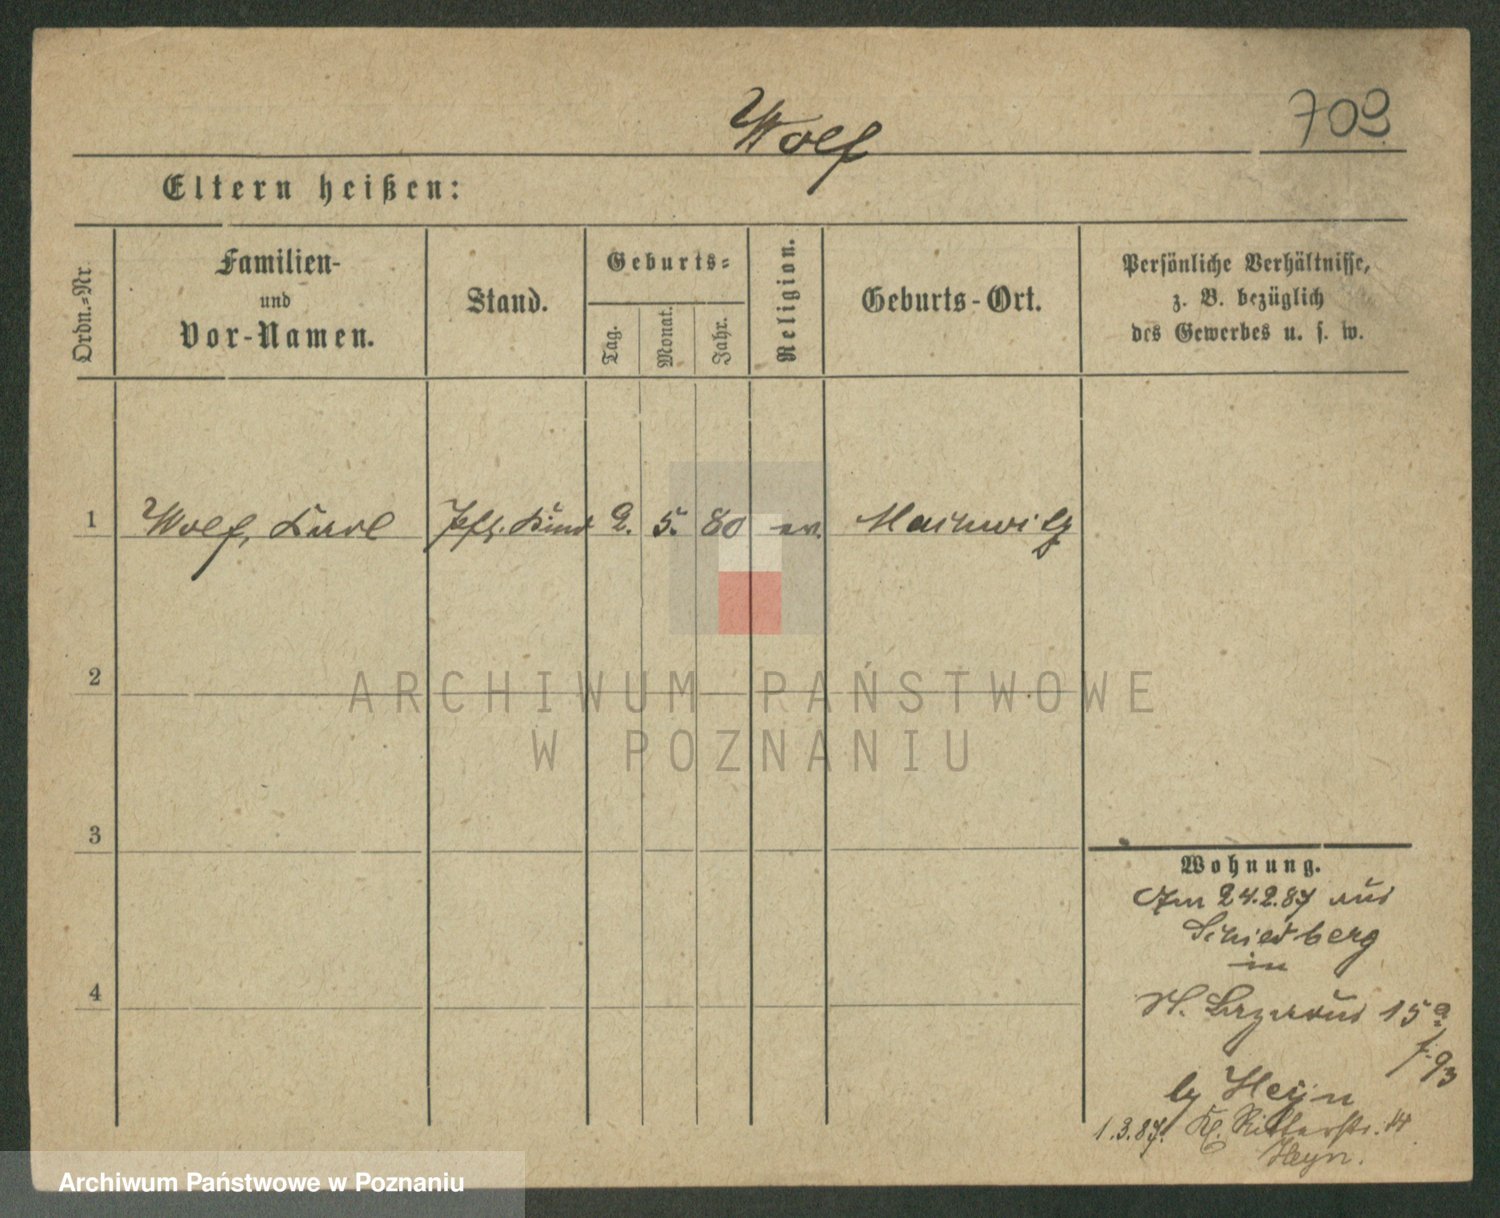 Wolf
703
Eltern heißen:
Ordn.-Nr
Familien-
und
Vor-Namen.
Stand.
Geburts-
Tag.
Monat.
Jahr.
Religion.
Geburts-Ort.
Persönliche Verhältnisse,
z. B. bezüglich
des Gewerbes u. s. w.
1 Wolf, Karl Pfl. Kind 2. 5. 80 ev.
2
3
4
ARCHIWUM PAŃSTWOWE
W POZNANIU
Wohnung.
Am 24.2.87 aus
Schiedberg
in
St. Lazarus 15a
by Heyn
1.3.87. Kl. Ritterstr. 14
Heyn.
Archiwum Państwowe w Poznaniu